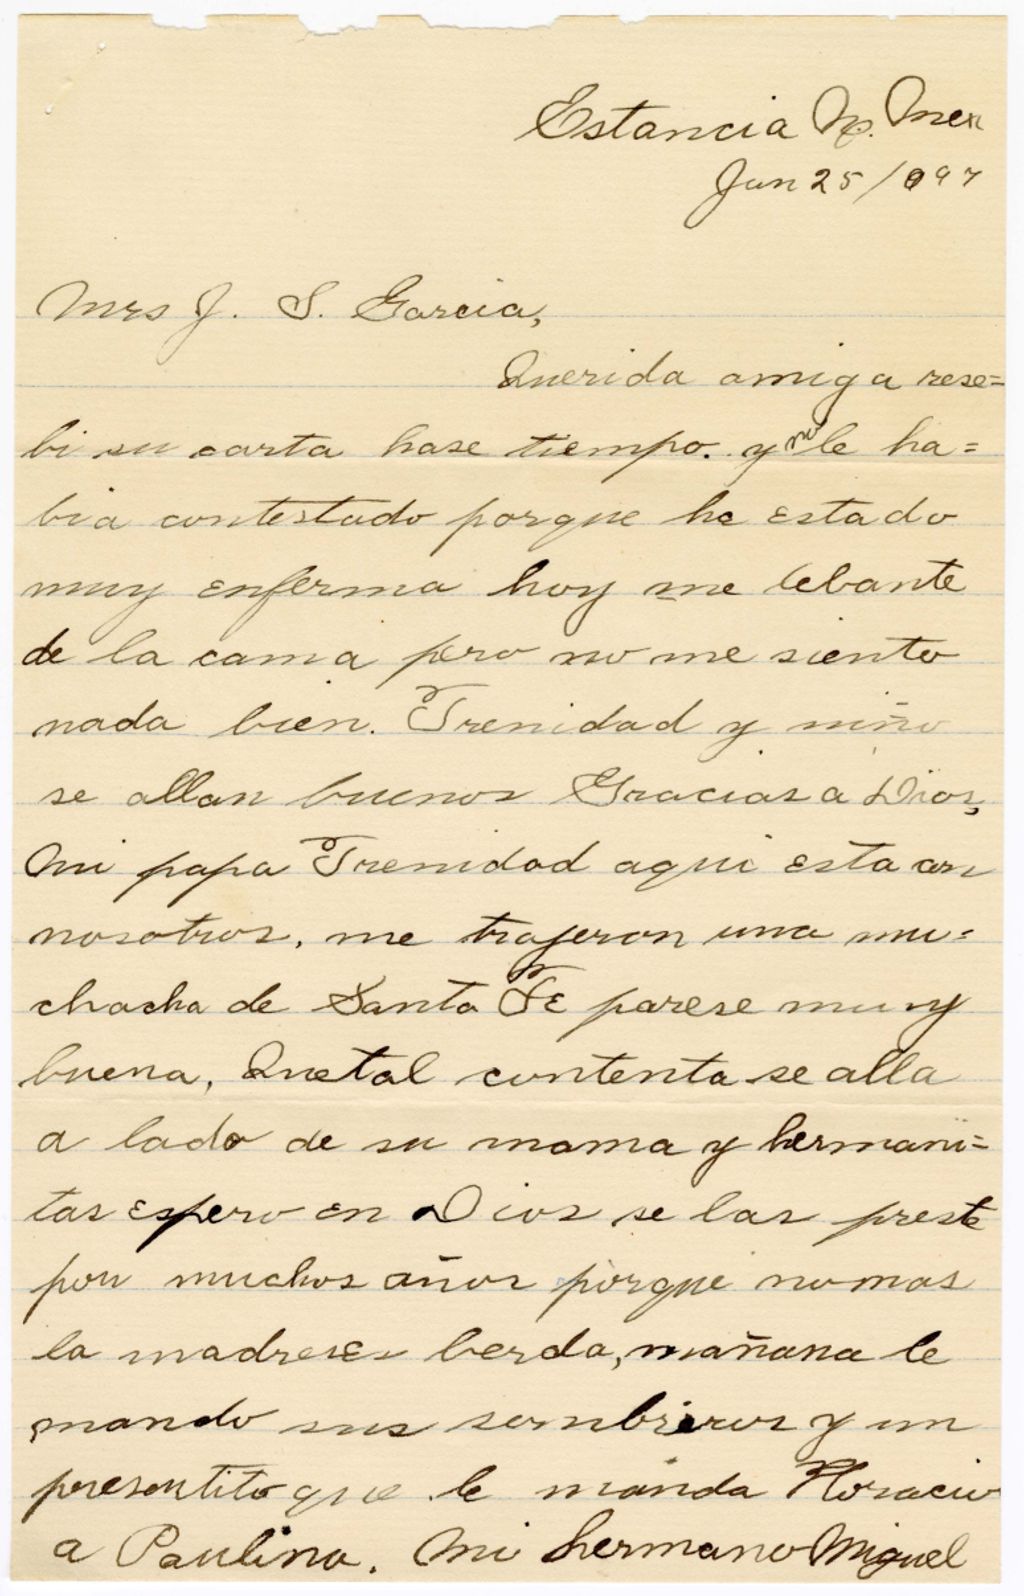 Estancia N. Mex
Jun 25/897
Mrs J. S. Garcia,
Querida amiga rese=
bi su carta hase tiempo. y no le ha=
bia contestado porque he estado
muy enferma hoy me lebante
de la cama pero no me siento
nada bien. Trenidad y niño
se allan buenos Gracias a Dios,
Mi papa Trenidad aqui esta con
nosotros. me trajeron una mu=
chacha de Santa Fe parese muy
buena, Quetal contenta se alla
a lado de su mama y hermani=
tas espero en Dios se las preste
por muchos años porque nomas
la madre es berda, mañana le
mando sus sombreros y un
presentito que le manda Horacio
a Paulina. Mi hermano Miguel